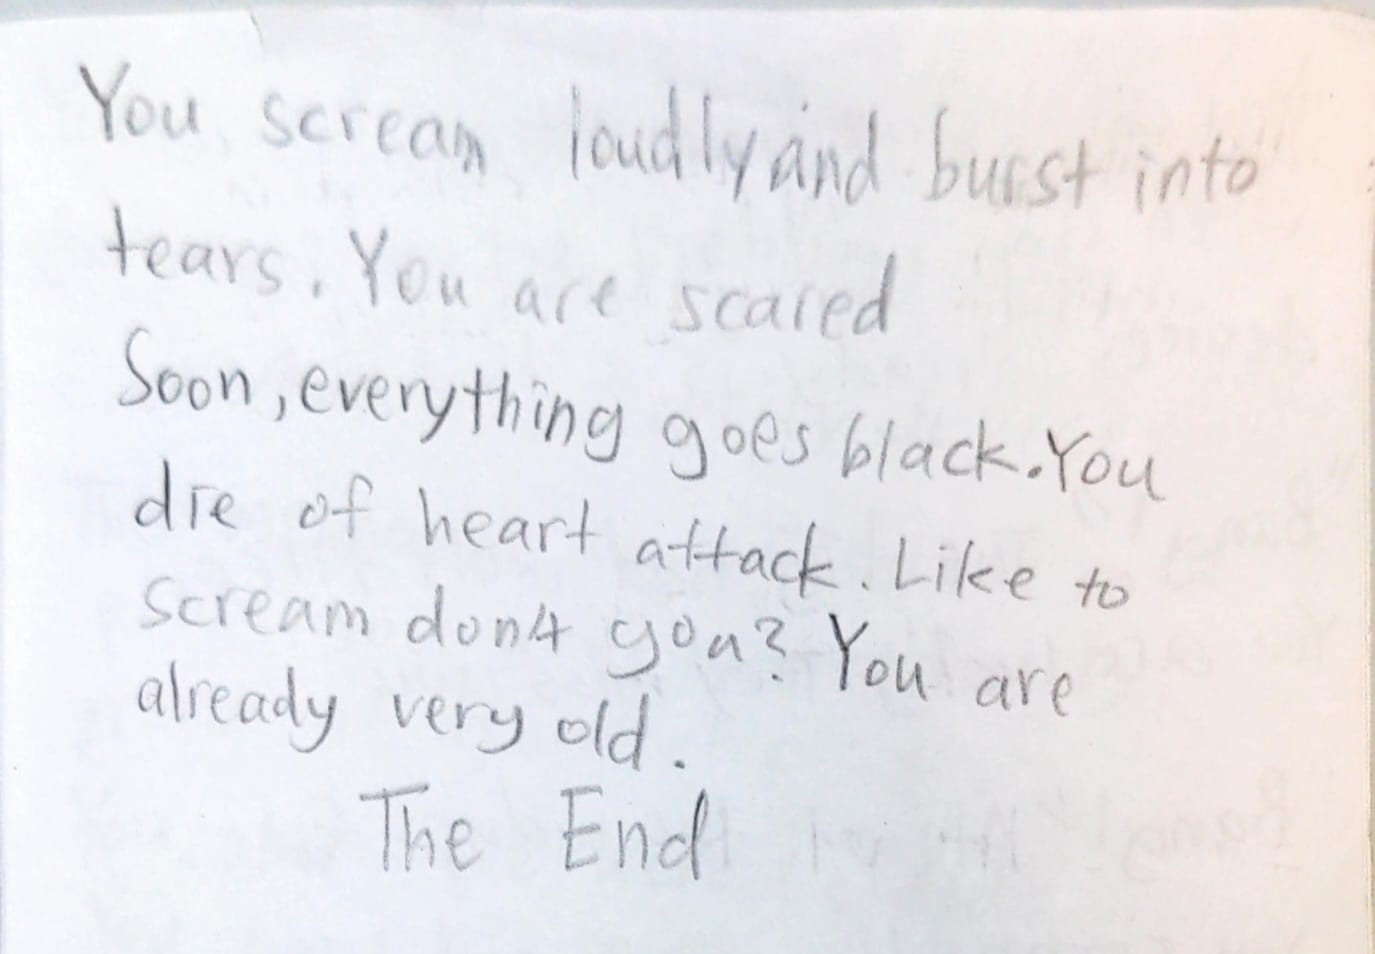 You scream loudly and burst into
tears. You are scared
Soon, everything goes black. You
die of heart attack. Like to
scream don4 you? You are
already very old.
The End